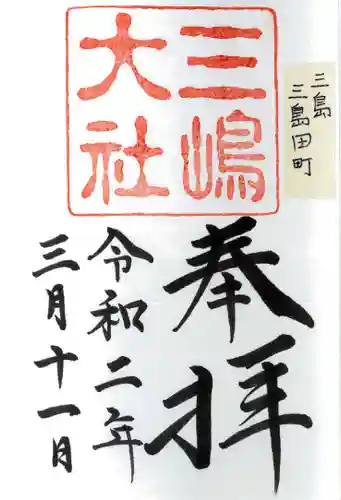 三嶋
大社
三島
三島田町
奉拝
令和二年
三月十一日